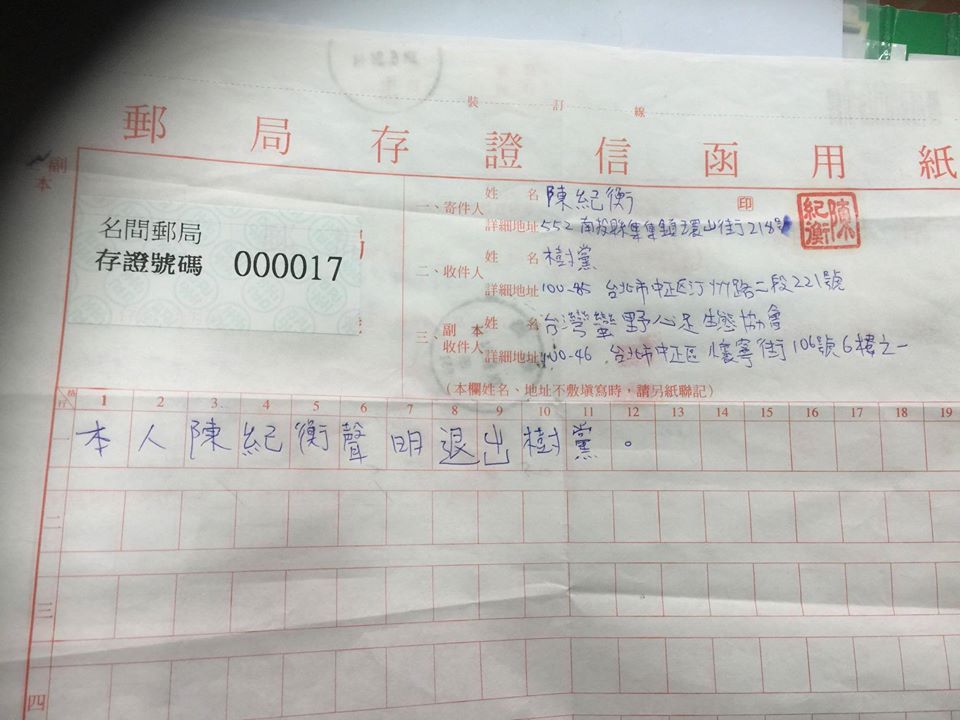 裝訂線
郵局存證信函用紙
副本
名間郵局
存證號碼 000017
一、寄件人 姓名 陳紀衡 印
陳紀衡
詳細地址 552 南投縣集集鎮環山街218號
二、收件人 姓名 樹黨
詳細地址 100-85 台北市中正區汀州路二段221號
三、副本收件人 姓名 台灣蠻野心足生態協會
詳細地址 100-46 台北市中正區懷寧街106號6樓之一
（本欄姓名、地址不敷填寫時，請另紙聯記）
格行 1 2 3 4 5 6 7 8 9 10 11 12 13 14 15 16 17 18 19
一 本人陳紀衡聲明退出樹黨。
二
三
四